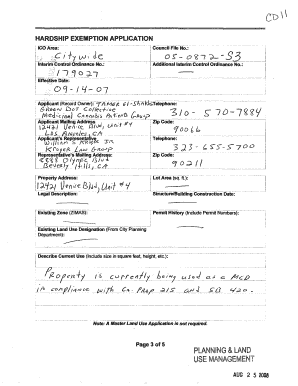 CD11
HARDSHIP EXEMPTION APPLICATION
ICO Area: Council File No.:
Citywide 05-0872-S3
Interim Control Ordinance No.: Additional Interim Control Ordinance No.:
179027
Effective Date:
09-14-07
Applicant (Record Owner): Telephone:
Green Dot Collective
Medicinal Cannabis Patient Group 310-570-7884
Applicant Mailing Address: Zip Code:
12421 Venice Blvd, Unit #4 90066
Los Angeles, CA
Applicant's Representative: Telephone:
William S. Kroger Jr 323-655-5700
Kroger Law Group
Representative's Mailing Address: Zip Code:
Olympic Blvd 90211
Beverly Hills, CA
Property Address: Lot Area (sq. ft.):
12421 Venice Blvd, Unit #4
Legal Description: Structure/Building Construction Date:
Existing Zone (ZIMAS): Permit History (Include Permit Numbers):
Existing Land Use Designation (From City Planning Department):
Describe Current Use (include size in square feet, height, etc.):
Property is currently being used as a MCD
in compliance with Ca. Prop 215 and SB 420.
Note: A Master Land Use Application is not required.
Page 3 of 5
PLANNING & LAND
USE MANAGEMENT
AUG 25 2008